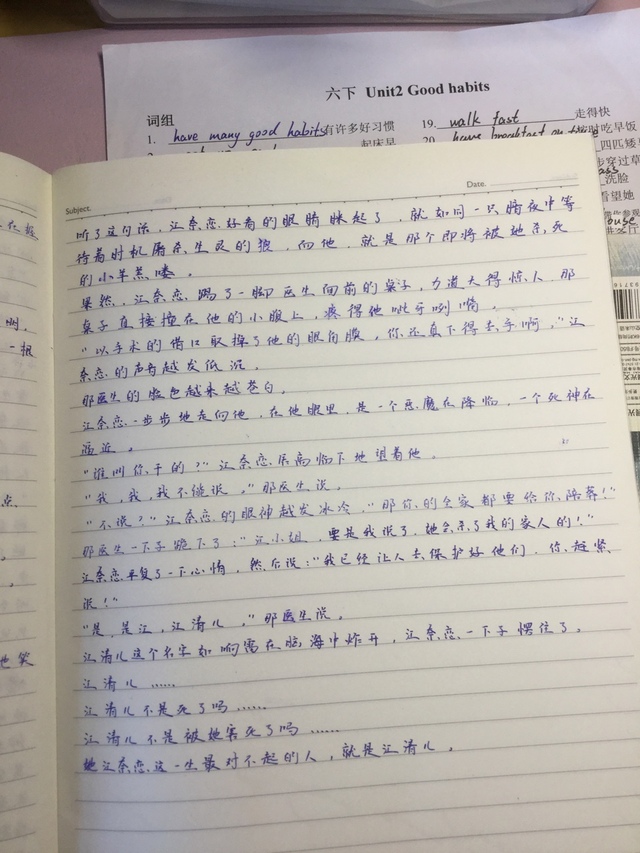 六下 Unit2 Good habits
词组
1. have many good habits 有许多好习惯
起床早
19. walk fast 走得快
20. have breakfast on time 按时吃早饭
四匹矮
步穿过草
洗脸
看望她
Subject.
Date.
听了这句话，江奈恋好看的眼睛眯起了，就如同一只暗夜中等
待着时机屠杀生灵的狼，而他，就是那个即将被她杀死
的小羊羔喽。
果然，江奈恋踢了一脚医生面前的桌子，力道大得惊人，那
桌子直接撞在他的小腹上，疼得他呲牙咧嘴。
“以手术的借口取掉了他的眼角膜，你还真下得去手啊，”江
奈恋的声音越发低沉。
那医生的脸色越来越苍白。
江奈恋一步步地走向他，在他眼里，是一个恶魔在降临，一个死神在
逼近。
“谁叫你干的？”江奈恋居高临下地望着他。
“我，我，我不能说，”那医生说。
“不说？”江奈恋的眼神越发冰冷，“那你的全家都要给你陪葬！”
那医生一下子跪下了：“江小姐，要是我说了，她会杀了我的家人的！”
江奈恋平复了一下心情，然后说：“我已经让人去保护好他们，你赶紧
说！”
“是，是江，江清儿，”那医生说。
江清儿这个名字如响雷在脑海中炸开，江奈恋一下子愣住了。
江清儿……
江清儿不是死了吗……
江清儿不是被她害死了吗……
她江奈恋这一生最对不起的人，就是江清儿。